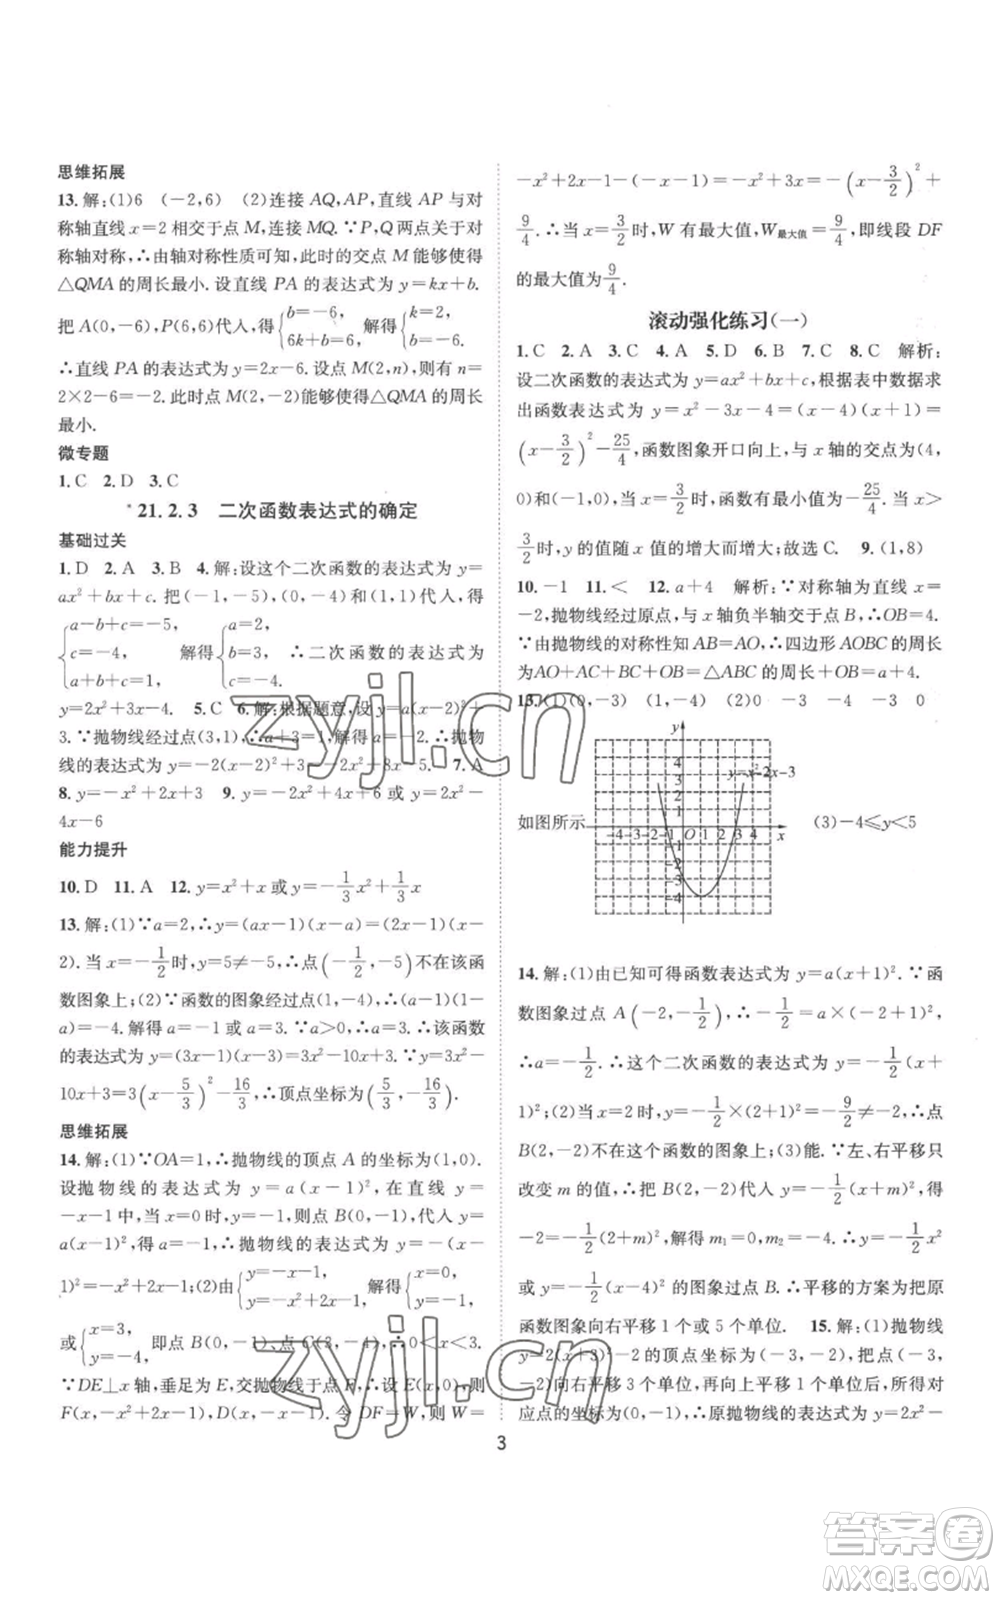 思维拓展
13.解:(1)6 (-2,6) (2)连接 AQ,AP,直线 AP 与对
称轴直线 x=2 相交于点 M,连接 MQ.∵P,Q 两点关于
对称轴对称,∴由轴对称性质可知,此时的交点 M 能够使得
△QMA 的周长最小. 设直线 PA 的表达式为 y=kx+b.
把 A(0,-6),P(6,6)代入,得{b=-6, 6k+b=6, 解得{k=2, b=-6.
∴直线 PA 的表达式为 y=2x-6. 设点 M(2,n),则有 n=
2×2-6=-2. 此时点 M(2,-2)能够使得△QMA 的周长
最小.
微专题
1. C 2. D 3. C
*21.2.3 二次函数表达式的确定
基础过关
1. D 2. A 3. B 4.解:设这个二次函数的表达式为 y=
ax²+bx+c. 把(-1,-5),(0,-4)和(1,1)代入,得
{a-b+c=-5, c=-4, a+b+c=1, 解得{a=2, b=3, c=-4. ∴二次函数的表达式为
y=2x²+3x-4. 5. C 6.解:根据题意,设 y=a(x-2)²+
3.∵抛物线经过点(3,1),∴a+3=1,解得 a=-2.∴抛物
线的表达式为 y=-2(x-2)²+3=-2x²+8x-5. 7. A
8. y=-x²+4x-3 9. y=-2x²+4x+6 或 y=2x²-
4x-6
能力提升
10. D 11. A 12. y=x²+x 或 y=-1/3x²+1/3x
13.解:(1)∵a=2,∴y=(ax-1)(x-a)=(2x-1)(x-
2). 当 x=-1/2时,y=5≠-5,∴点(-1/2,-5)不在该函
数图象上;(2)∵函数的图象经过点(1,-4),∴(a-1)(1-
a)=-4. 解得 a=-1 或 a=3.∵a>0,∴a=3,∴该函数
的表达式为 y=(3x-1)(x-3)=3x²-10x+3.∵y=3x²-
10x+3=3(x-5/3)²-16/3,∴顶点坐标为(5/3,-16/3).
思维拓展
14.解:(1)∵OA=1,∴抛物线的顶点 A 的坐标为(1,0).
设抛物线的表达式为 y=a(x-1)²,在直线 y=
-x-1 中,当 x=0 时,y=-1,则点 B(0,-1),代入 y=
a(x-1)²,得 a=-1,∴抛物线的表达式为 y=-(x-
1)²=-x²+2x-1;(2)由{y=-x-1, y=-x²+2x-1, 解得{x=0, y=-1,
或{x=3, y=-4, 即点 B(0,-1),点 C(3,-4),∴0<x<3.
∵DE⊥x 轴,垂足为 E,交抛物线于点 F,∴设 E(x,0),则
F(x,-x²+2x-1),D(x,-x-1). 令 DF=W,则 W=
-x²+2x-1-(-x-1)=-x²+3x=-(x-3/2)²+
9/4.∴当 x=3/2时,W 有最大值,W最大值=9/4,即线段 DF
的最大值为9/4.
滚动强化练习(一)
1. C 2. A 3. C 4. A 5. D 6. B 7. C 8. C 解析:
设二次函数的表达式为 y=ax²+bx+c,根据表中数据求
出函数表达式为 y=x²-3x-4=(x-4)(x+1)=
(x-3/2)²-25/4,函数图象开口向上,与 x 轴的交点为(4,
0)和(-1,0),当 x=3/2时,函数有最小值为-25/4.当 x>
3/2时,y 的值随 x 值的增大而增大;故选 C. 9.(1,8)
10.-1 11.< 12. a+4 解析:∵对称轴为直线 x=
-2,抛物线经过原点,与 x 轴负半轴交于点 B,∴OB=4.
∵由抛物线的对称性知 AB=AO,∴四边形 AOBC 的周长
为AO+AC+BC+OB=△ABC 的周长+OB=a+4.
13.(1)(0,-3) (1,-4) (2)0 -3 -4 -3 0
如图所示 (3)-4≤y<5
y
y=x²-2x-3
4
3
2
1
-4-3-2-1 O 1 2 3 4 x
-3
-4
14.解:(1)由已知可得函数表达式为 y=a(x+1)².∵函
数图象过点 A(-2,-1/2),∴-1/2=a×(-2+1)²,
∴a=-1/2.∴这个二次函数的表达式为 y=-1/2(x+
1)²;(2)当 x=2 时,y=-1/2×(2+1)²=-9/2≠-2,∴点
B(2,-2)不在这个函数的图象上;(3)能.∵左、右平移只
改变 m 的值,∴把 B(2,-2)代入 y=-1/2(x+m)²,得
-2=-1/2(2+m)².解得 m₁=0,m₂=-4.∴y=-1/2x²
或 y=-1/2(x-4)²的图象过点 B.∴平移的方案为把原
函数图象向右平移 1 个或 5 个单位. 15.解:(1)抛物线
y=2(x+3)²-2 的顶点坐标为(-3,-2),把点(-3,
-2)向右平移 3 个单位,再向上平移 1 个单位,所得对
应点的坐标为(0,-1),∴原抛物线的表达式为 y=2x²-
3
zyjl.cn
zyjl.cn
答案圈
MXQE.COM